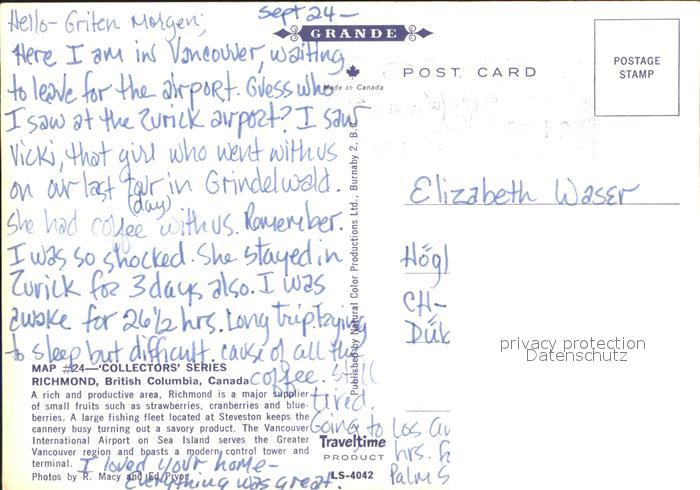 Sept 24-
Hello- Griten Morgen;
Here I am in Vancouver, waiting
to leave for the airport. Guess who
I saw at the Zurick airport? I saw
Vicki, that girl who went with us
on our last tour in Grindelwald.
(day)
She had coffee with us. Remember.
I was so shocked. She stayed in
Zurick for 3 days also. I was
awake for 26 1/2 hrs. Long trip. Trying
to sleep but difficult. cause of all the
coffee. Still
tired.
Going to Los
hrs.
Palm S
I loved your home-
everything was great.
GRANDE
Made in Canada
POST CARD
POSTAGE
STAMP
Elizabeth Waser
Högl
CH-
Dük
privacy protection
Datenschutz
Published by Natural Color Productions Ltd., Burnaby 2, B.C.
MAP #24—'COLLECTORS' SERIES
RICHMOND, British Columbia, Canada
A rich and productive area, Richmond is a major supplier
of small fruits such as strawberries, cranberries and blue-
berries. A large fishing fleet located at Steveston keeps the
cannery busy turning out a savory product. The Vancouver
International Airport on Sea Island serves the Greater
Vancouver region and boasts a modern control tower and
terminal.
Photos by R. Macy and Ed Pryor
by
Traveltime
PRODUCT
LS-4042